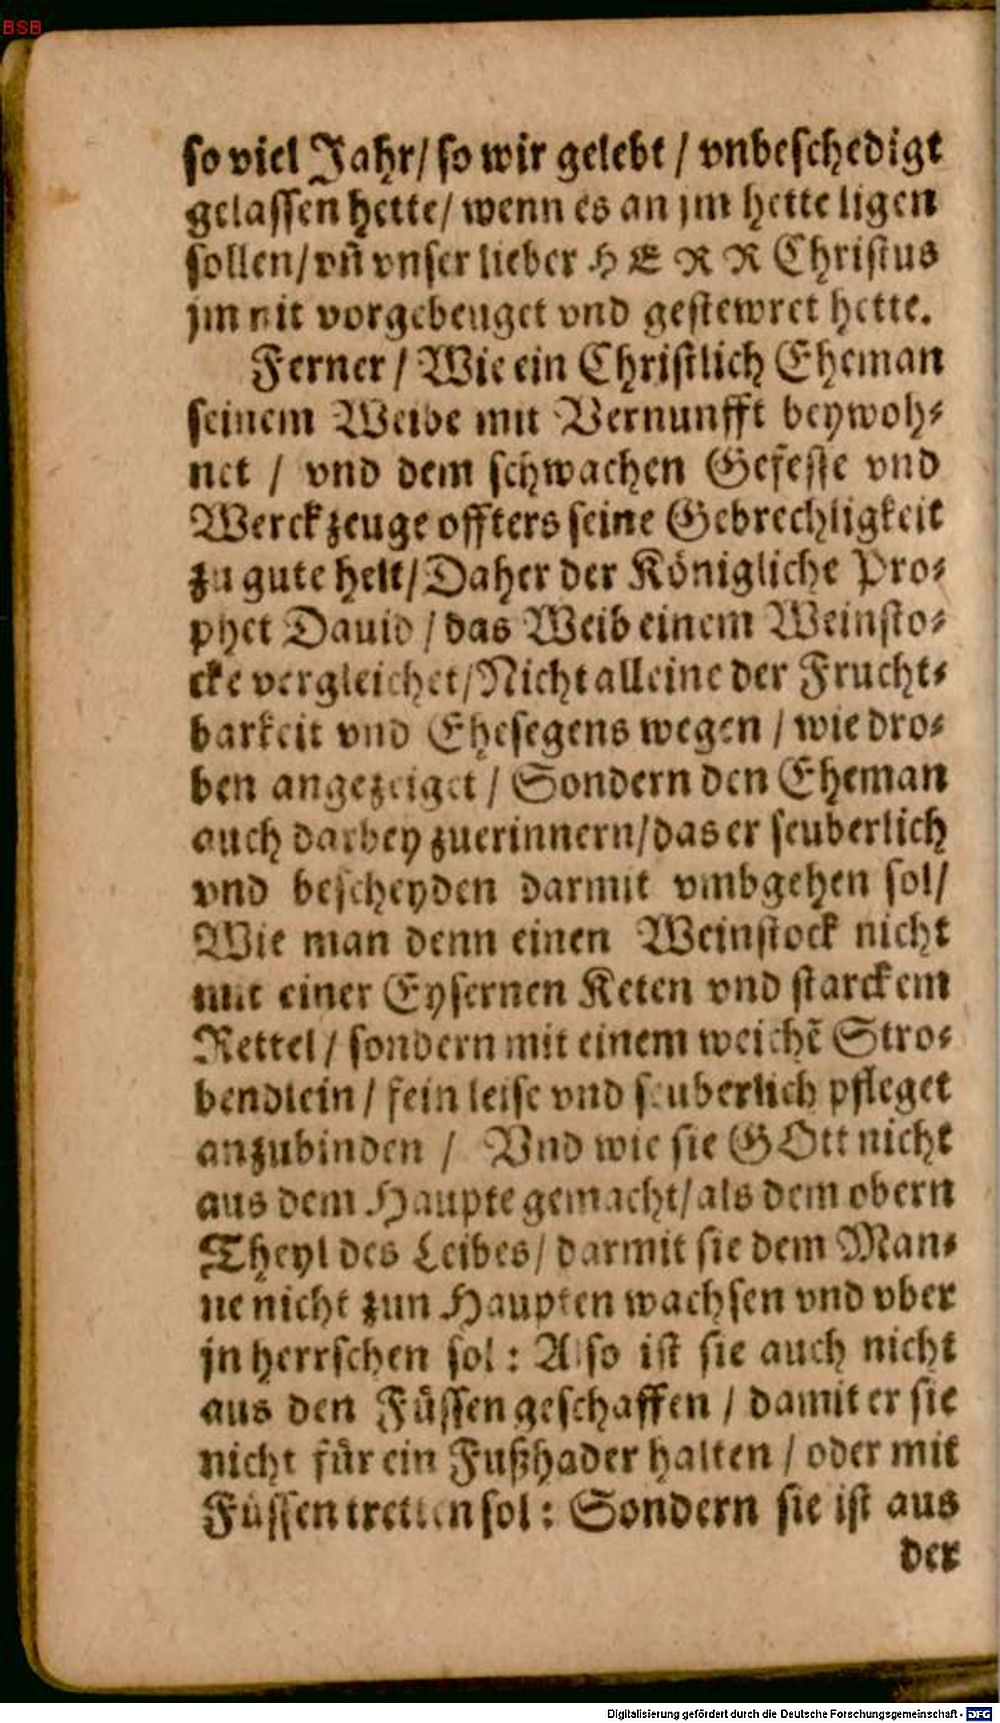 BSB
so viel Jahr/ so wir gelebt / vnbeschedigt
gelassen hette/ wenn es an jm hette ligen
sollen/ vñ vnser lieber HERR Christus
jm nit vorgebeuget vnd gestewret hette.
Ferner / Wie ein Christlich Eheman
seinem Weibe mit Vernunfft beywoh⸗
net / vnd dem schwachen Gefesse vnd
Werckzeuge offters seine Gebrechligkeit
zu gute helt/ Daher der Königliche Pro⸗
phet Dauid / das Weib einem Weinsto⸗
cke vergleichet/ Nicht alleine der Frucht⸗
barkeit vnd Ehesegens wegen / wie dro⸗
ben angezeiget / Sondern den Eheman
auch darbey zuerinnern/ das er seuberlich
vnd bescheyden darmit vmbgehen sol/
Wie man denn einen Weinstock nicht
mit einer Eysernen Keten vnd starckem
Rettel / sondern mit einem weichẽ Stro⸗
bendlein / fein leise vnd seuberlich pfleget
anzubinden / Vnd wie sie GOtt nicht
aus dem Haupte gemacht/ als dem obern
Theyl des Leibes/ darmit sie dem Man⸗
ne nicht zun Haupten wachsen vnd vber
jn herrschen sol : Also ist sie auch nicht
aus den Fuͤssen geschaffen / damit er sie
nicht fuͤr ein Fußhader halten / oder mit
Fuͤssen tretten sol : Sondern sie ist aus
der
Digitalisierung gefördert durch die Deutsche Forschungsgemeinschaft - DFG